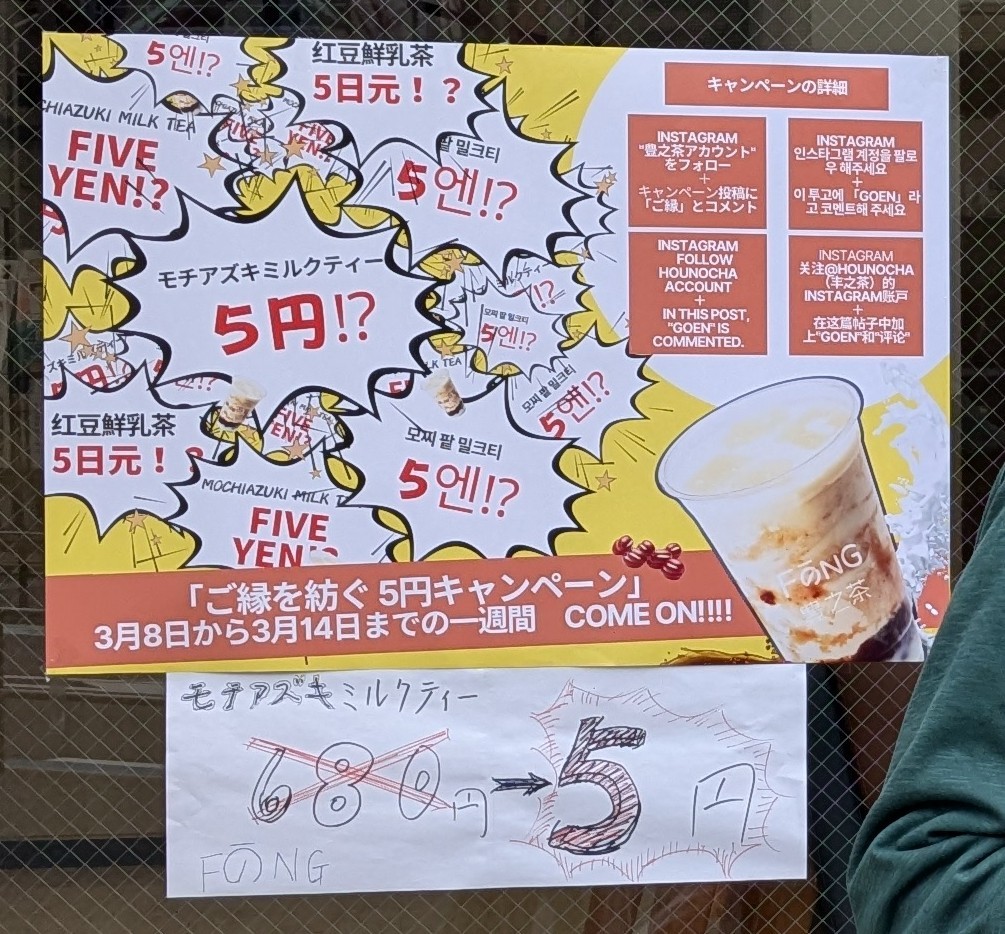 5엔!?
红豆鮮乳茶
5日元！？
CHIAZUKI MILK TEA
FIVE
YEN!?
FIVE
YEN!?
팥 밀크티
5엔!?
モチアズキミルクティー
5円!?
ミルクティー
!?
모찌 팥 밀크티
5엔!?
K TEA
모찌 팥 밀크티
5엔!?
ズキミルクティ
円!?
红豆鮮乳茶
5日元！？
FIVE
YEN!?
모찌 팥 밀크티
5엔!?
MOCHIAZUKI MILK T
FIVE
YEN!?
キャンペーンの詳細
INSTAGRAM
"豊之茶アカウント"
をフォロー
+
キャンペーン投稿に
「ご縁」とコメント
INSTAGRAM
인스타그램 계정을 팔로
우 해주세요
+
이 투고에 「GOEN」라
고 코멘트해 주세요
INSTAGRAM
FOLLOW
HOUNOCHA
ACCOUNT
+
IN THIS POST,
"GOEN" IS
COMMENTED.
INSTAGRAM
关注@HOUNOCHA
（丰之茶）的
INSTAGRAM账戸
+
在这篇帖子中加
上"GOEN"和"评论"
FのNG
豊之茶
「ご縁を紡ぐ 5円キャンペーン」
3月8日から3月14日までの一週間 COME ON!!!!
モチアズキミルクティー
680円→5円
FのNG